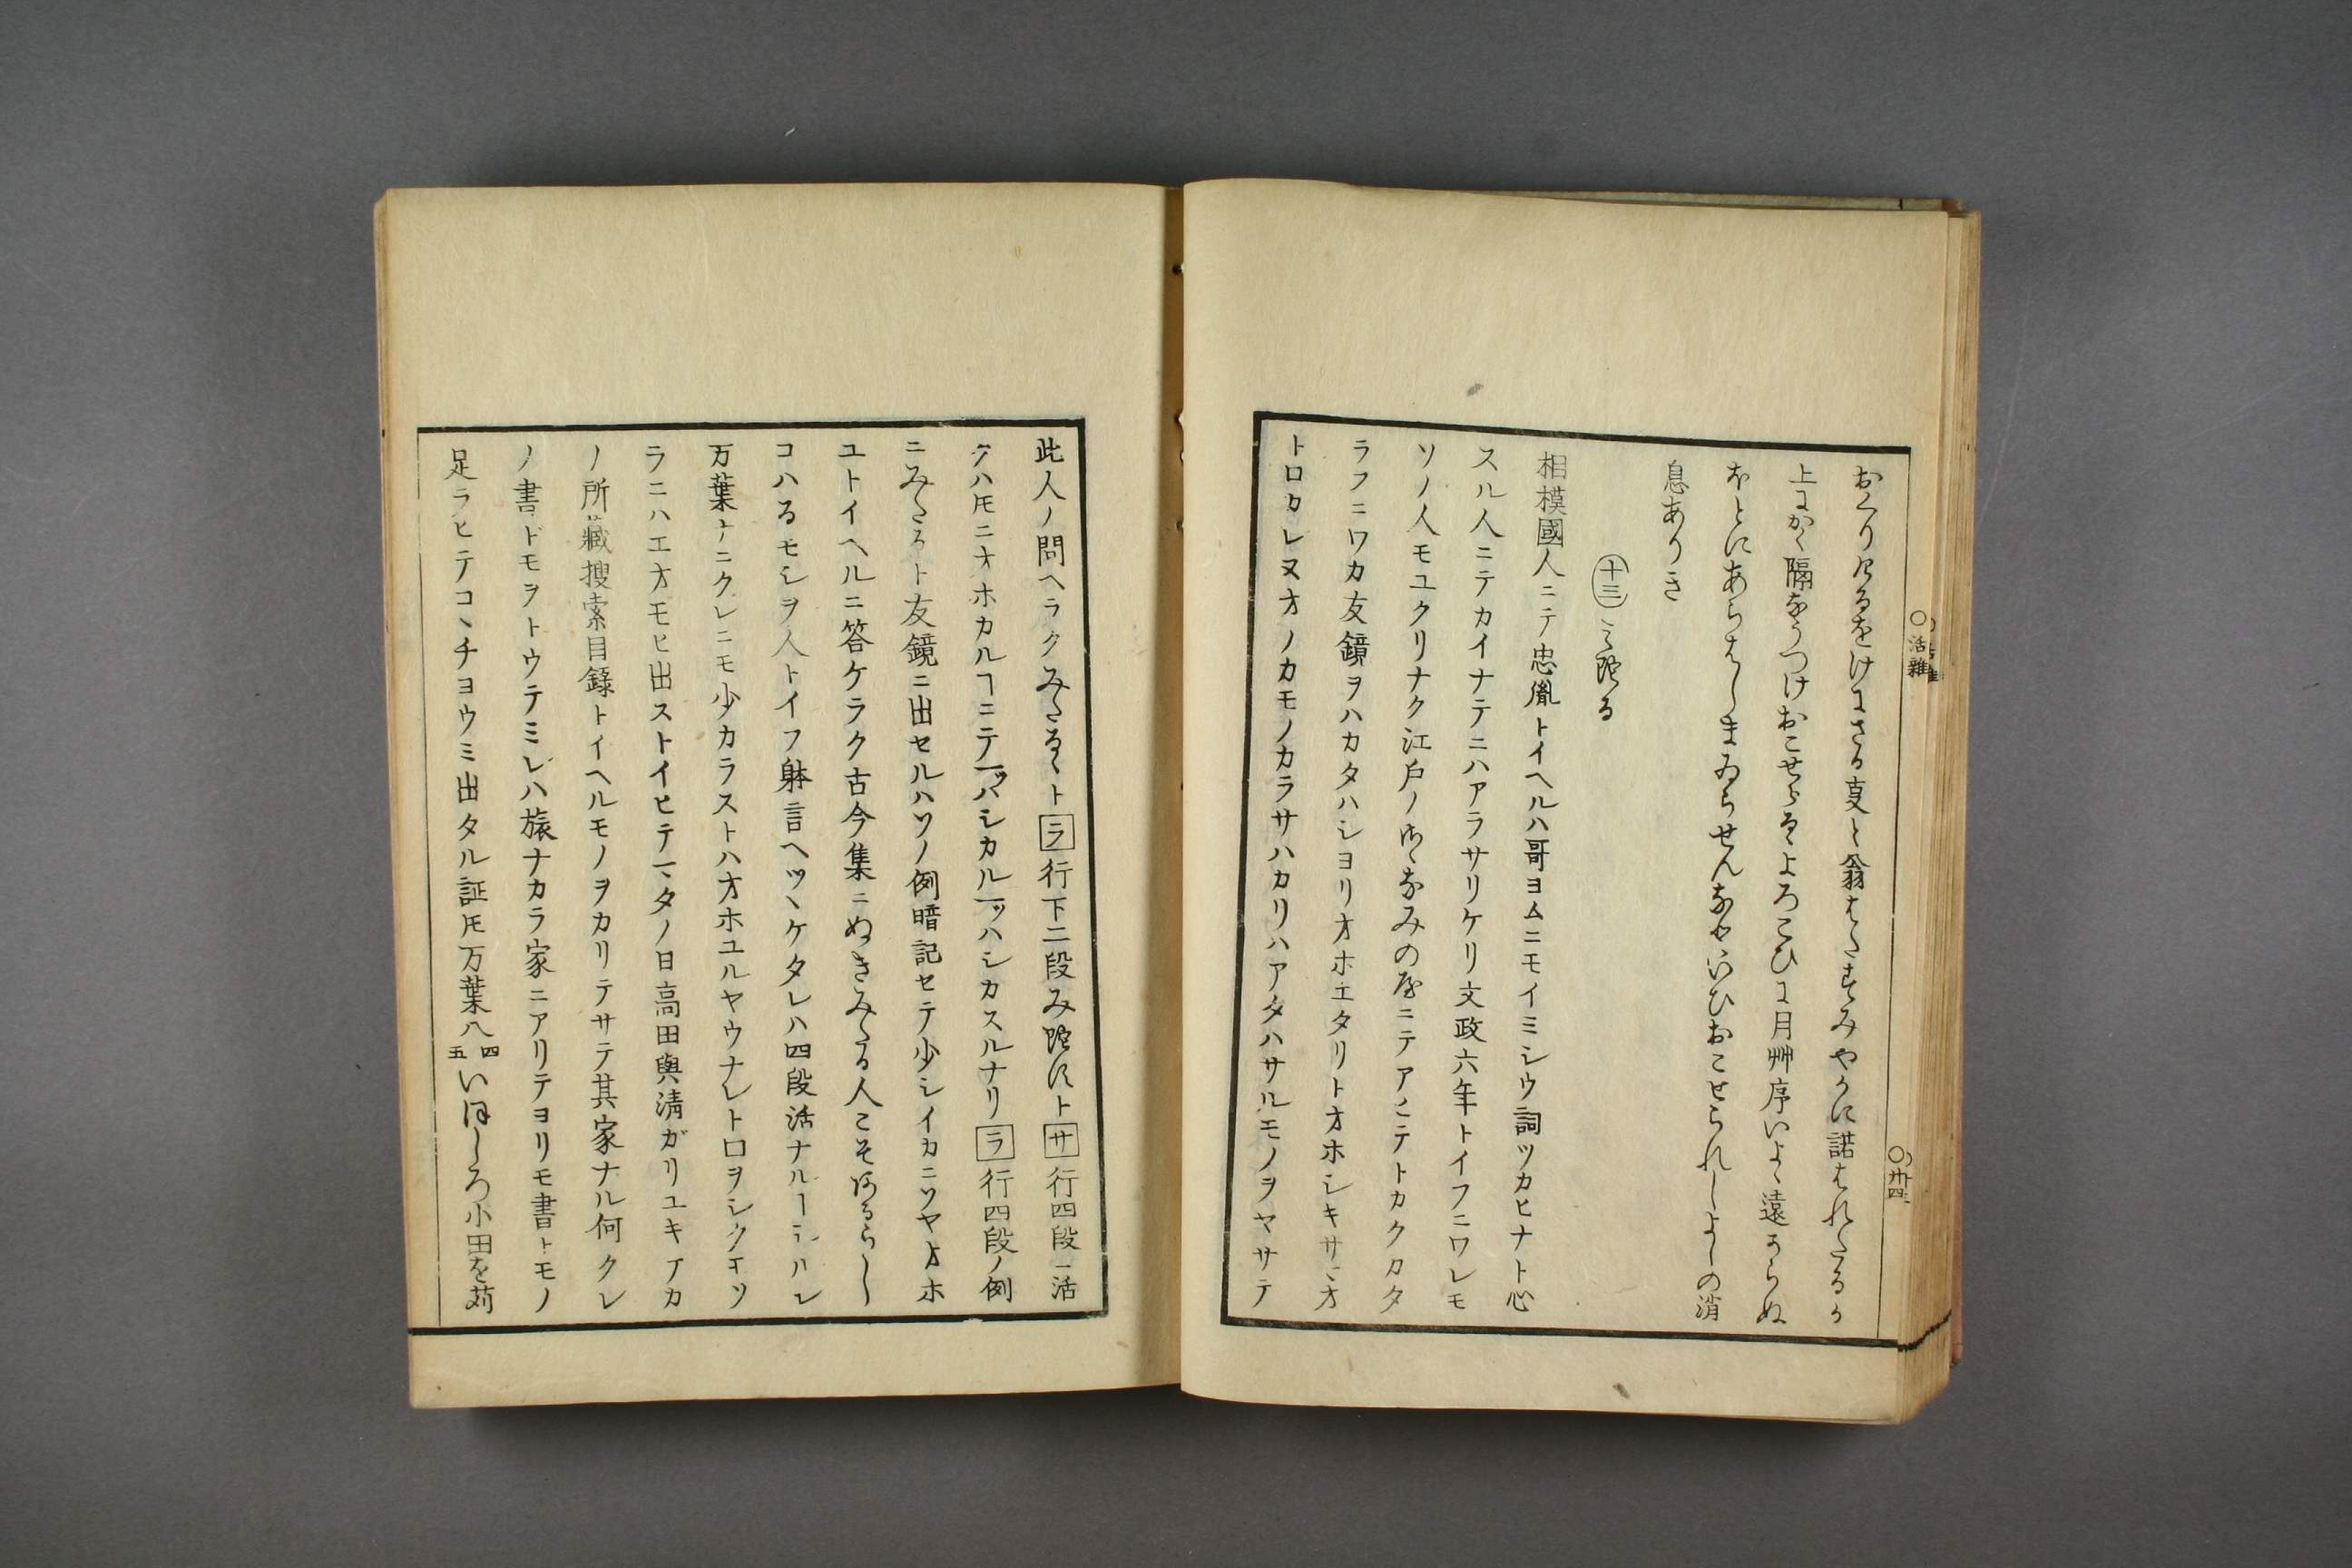 おくりけるをけにさる事と翁はたすみやかに諾はれたるか
上にかく隔をうつけおこせらるよろこひに月艸序いよゝ遠からぬ
ほとにあらはしまゐらせんなといひおこせられしよしの消
息ありき
十三 みたる
相模國人ニテ忠胤トイヘルハ哥ヨムニモイミシウ詞ツカヒナト心
スル人ニテカイナテニハアラサリケリ文政六年トイフニワレモ
ソノ人モユクリナク江戸ノさゝなみの屋ニテアヒテトカクカタ
ラフニワカ友鏡ヲハカタハシヨリオホエタリトオホシキサマオ
トロカレヌオノカモノカラサハカリハアタハサルモノヲヤサテ
此人ノ問ヘラクみたるゝトラ行下二段みたすトサ行四段ノ活
クハ𪜈ニオホカルヿニテハシカルヿハシカスルナリラ行四段ノ例
ニみたるト友鏡ニ出セルハソノ例暗記セテ少シイカニソヤオホ
ユトイヘルニ答ケラク古今集ニぬきみたる人こそあるらし
コハるモシヲ人トイフ躰言ヘツヽケタレハ四段活ナルヿシルシ
万葉ナトニクレニモ少カラストハオホユルヤウナレトロヲシクエソ
ラニハエオモヒ出ストイヒテマタノ日高田與清ガリユキテカ
ノ所藏搜索目錄トイヘルモノヲカリテサテ其家ナル何クレ
ノ書𪜈ヲトウテミレハ旅ナカラ家ニアリテヨリモ書トモノ
足ラヒテコヽチヨウミ出タル証𪜈万葉八四五いほしろ小田を苅
○活雜
○卅四